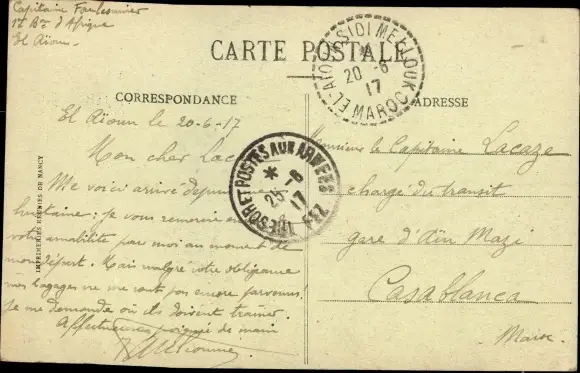 Capitaine
1er Bon d'Afrique
El Aïoun
CARTE POSTALE
EL AIOUN SIDI MELLOUK
20 -6
17
MAROC
CORRESPONDANCE
ADRESSE
El Aïoun le 20-6-17
Mon cher Lacaze
Me voici arrivé depuis une
huitaine; je vous remercie de
votre amabilité pour moi au moment de
mon départ. Mais malgré votre obligeance
mes bagages ne me sont pas encore parvenus!
Je me demande où ils doivent trainer.
Affectueuse poignée de main
TRESOR ET POSTES AUX ARMEES
*
-6
17
FEZ
Monsieur le Capitaine Lacaze
chargé du transit
gare d'Aïn Mazi
Casablanca
Maroc
IMPRIMERIES REUNIES DE NANCY